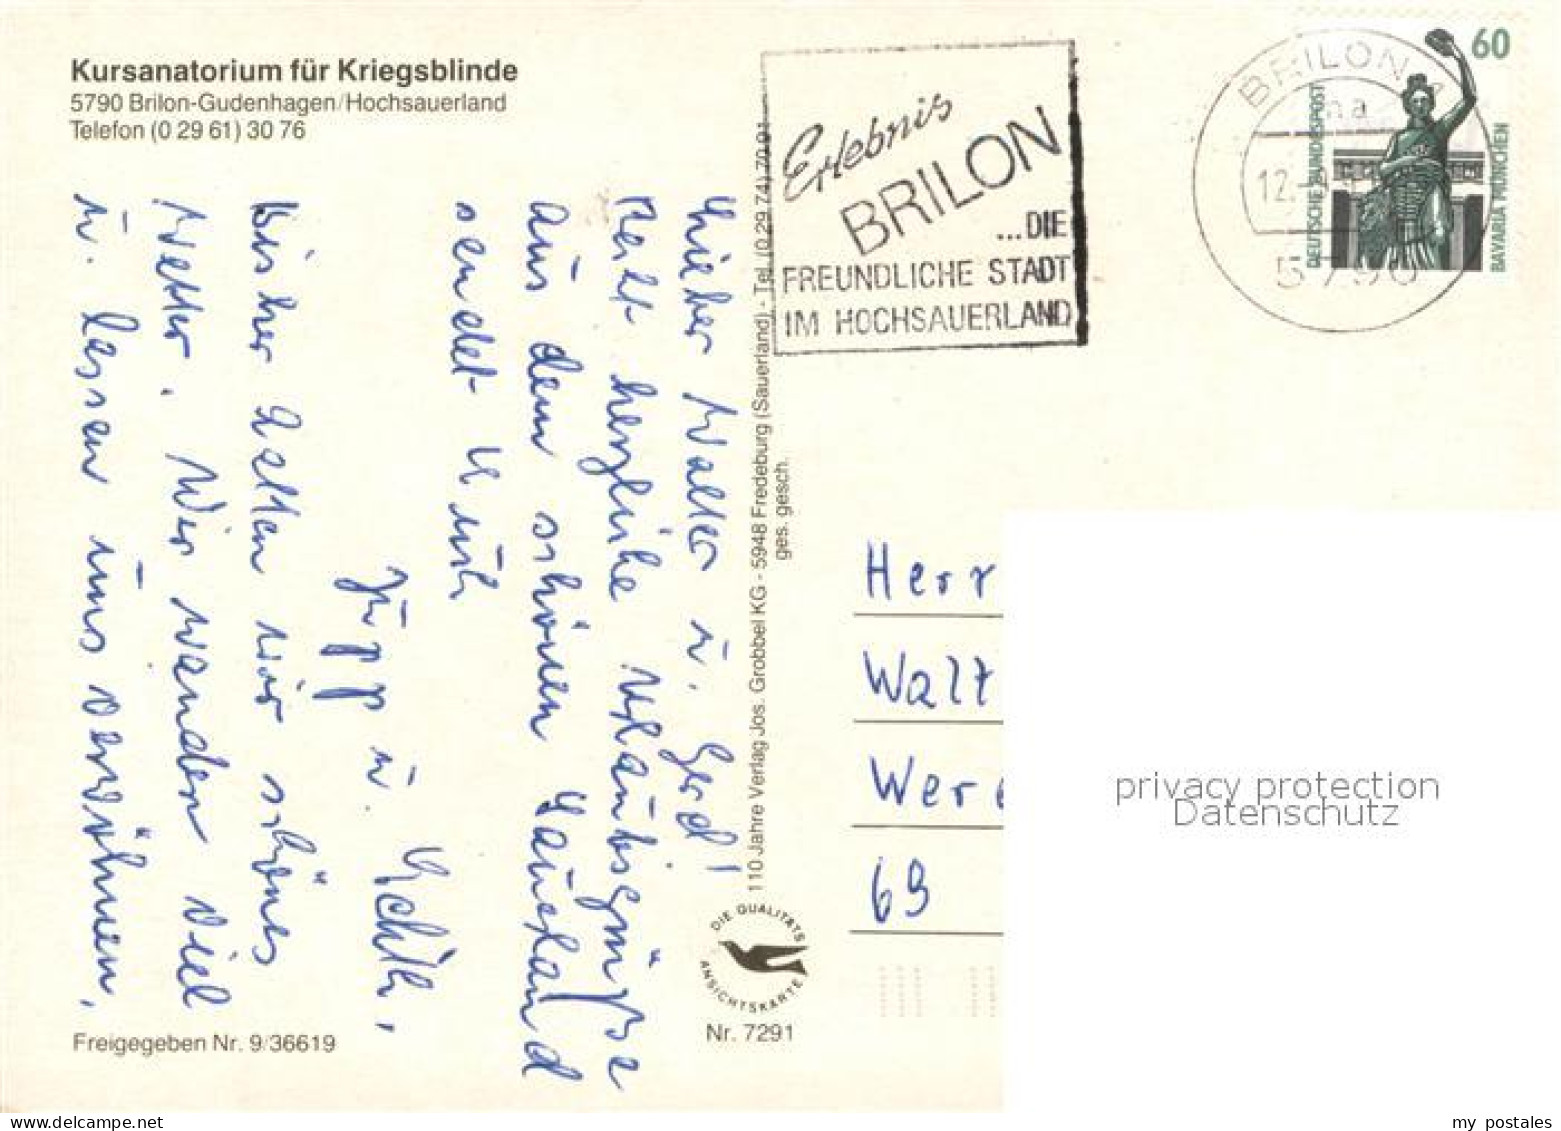 Kursanatorium für Kriegsblinde
5790 Brilon-Gudenhagen/Hochsauerland
Telefon (0 29 61) 30 76
Erlebnis
BRILON
...DIE
FREUNDLICHE STADT
IM HOCHSAUERLAND
BRILON
12.
5790
60
DEUTSCHE BUNDESPOST
BAVARIA MÜNCHEN
Lieber Walter u. Gerd!
Recht herzliche Urlaubsgrüße
aus dem schönen Sauerland
sendet Euch
Jupp u.
Bisher hatten wir schönes
Wetter. Wir wandern viel
u. lassen uns verwöhnen,
110 Jahre Verlag Jos. Grobbel KG - 5948 Fredeburg (Sauerland) - Tel. (0 29 74) 70 91
ges. gesch.
Herr
Walt
Were
69
DIE QUALITÄTS
ANSICHTSKARTE
Nr. 7291
Freigegeben Nr. 9/36619
privacy protection
Datenschutz
my postales
www.delcampe.net